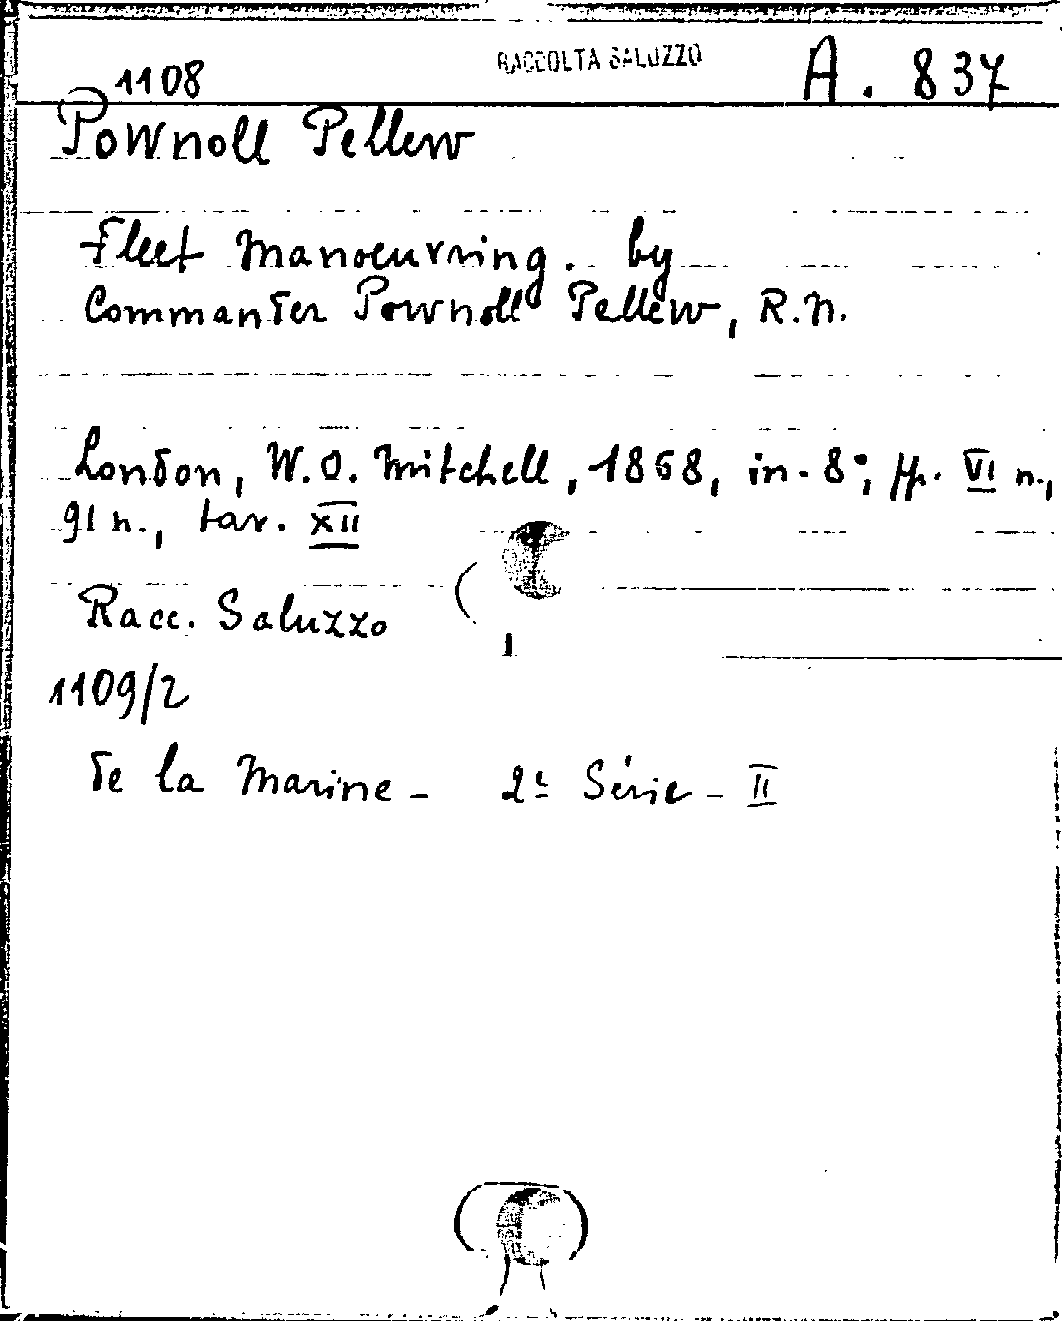 1108 RACCOLTA SALUZZO A. 837
Pownoll Pellew
Fleet Manoeuvring. by
Commander Pownoll Pellew, R.N.
London, W.O. Mitchell, 1868, in-8°; pp. VI n.,
91 n., tav. XII
Racc. Saluzzo
1109/2
de la Marine - 2e Série - II